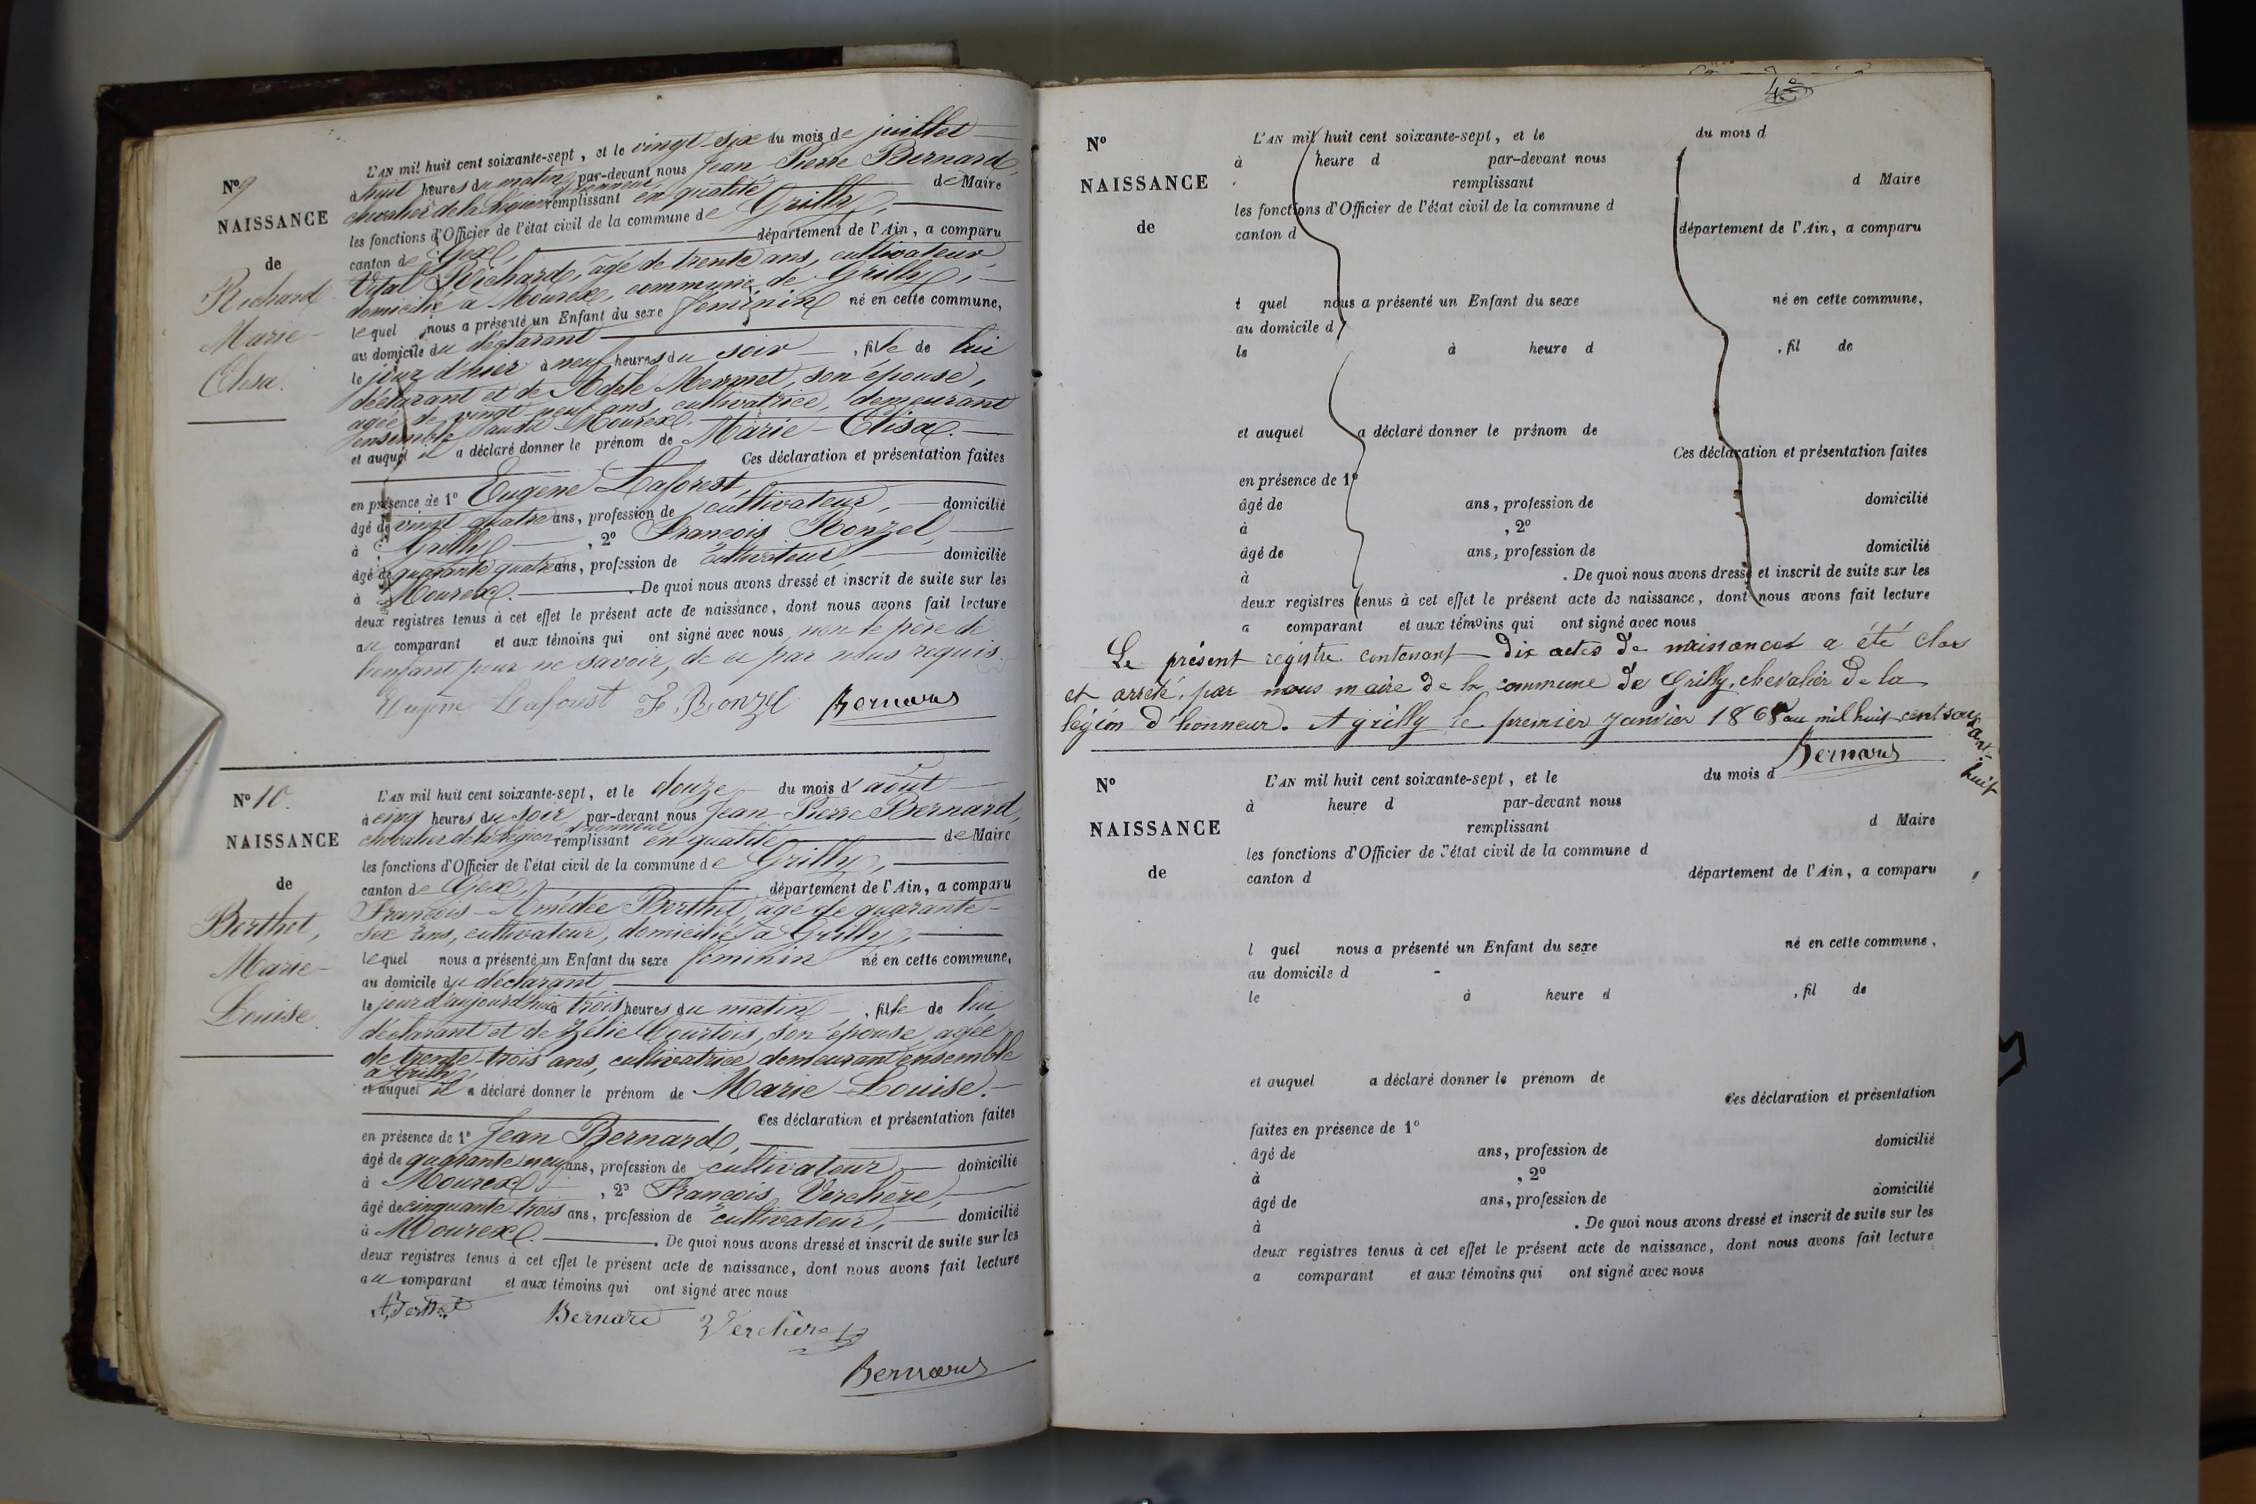 N° 9
NAISSANCE
de
Richard
Marie
Elisa.
L'AN mil huit cent soixante-sept, et le vingt-six du mois de juillet
à huit heures du matin par-devant nous Jean-Pierre Bernard,
chevalier de la légion d'honneur remplissant en qualité de Maire
les fonctions d'Officier de l'état civil de la commune de Grilly,
canton de Gex, département de l'Ain, a comparu
Vital Richard, âgé de trente ans, cultivateur
domicilié à Mourex, commune de Grilly,
lequel nous a présenté un Enfant du sexe féminin né en cette commune,
au domicile du déclarant
le jour d'hier à neuf heures du soir, fille de lui
déclarant et de Adèle Mermet, son épouse,
agée de vingt-neuf ans, cultivatrice, demeurant
ensemble audit Mourex.
et auquel il a déclaré donner le prénom de Marie-Elisa.
Ces déclaration et présentation faites
en présence de 1° Eugène Laforest,
âgé de vingt quatre ans, profession de cultivateur, domicilié
à Grilly, 2° François Ronzel,
âgé de quarante quatre ans, profession de cultivateur, domicilié
à Mourex. De quoi nous avons dressé et inscrit de suite sur les
deux registres tenus à cet effet le présent acte de naissance, dont nous avons fait lecture
au comparant et aux témoins qui ont signé avec nous, non le père de
l'enfant pour ne savoir, de ce par nous requis.
Eugène Laforest F. Ronzel Bernard
N° 10.
NAISSANCE
de
Berthet,
Marie-
Louise.
L'AN mil huit cent soixante-sept, et le douze du mois d'août
à cinq heures du soir par-devant nous Jean-Pierre Bernard,
chevalier de la légion d'honneur remplissant en qualité de Maire
les fonctions d'Officier de l'état civil de la commune de Grilly,
canton de Gex, département de l'Ain, a comparu
François-Amédée Berthet, âgé de quarante-
six ans, cultivateur, domicilié à Grilly,
lequel nous a présenté un Enfant du sexe féminin né en cette commune,
au domicile du déclarant
le jour d'aujourd'hui à trois heures du matin, fille de lui
déclarant et de Zélie Courtois, son épouse, agée
de trente-trois ans, cultivatrice, demeurant ensemble
à Grilly,
et auquel il a déclaré donner le prénom de Marie-Louise.
Ces déclaration et présentation faites
en présence de 1° Jean Bernard,
âgé de quarante neuf ans, profession de cultivateur, domicilié
à Mourex, 2° François Verchère,
âgé de cinquante trois ans, profession de cultivateur, domicilié
à Mourex. De quoi nous avons dressé et inscrit de suite sur les
deux registres tenus à cet effet le présent acte de naissance, dont nous avons fait lecture
au comparant et aux témoins qui ont signé avec nous
Bernard Verchère
Bernard
N°
NAISSANCE
de
L'AN mil huit cent soixante-sept, et le du mois d
à heure d par-devant nous
remplissant d Maire
les fonctions d'Officier de l'état civil de la commune d
canton d département de l'Ain, a comparu
l quel nous a présenté un Enfant du sexe né en cette commune,
au domicile d
le à heure d , fil de
et auquel a déclaré donner le prénom de
Ces déclaration et présentation faites
en présence de 1°
âgé de ans, profession de domicilié
à , 2°
âgé de ans, profession de domicilié
à . De quoi nous avons dressé et inscrit de suite sur les
deux registres tenus à cet effet le présent acte de naissance, dont nous avons fait lecture
a comparant et aux témoins qui ont signé avec nous
Le présent registre contenant dix actes de naissances a été clos
et arrêté, par nous maire de la commune de Grilly, chevalier de la
légion d'honneur. A grilly le premier janvier 1868 au mil huit cent soixante
huit
Bernard
N°
NAISSANCE
de
L'AN mil huit cent soixante-sept, et le du mois d
à heure d par-devant nous
remplissant d Maire
les fonctions d'Officier de l'état civil de la commune d
canton d département de l'Ain, a comparu
l quel nous a présenté un Enfant du sexe né en cette commune,
au domicile d
le à heure d , fil de
et auquel a déclaré donner le prénom de
Ces déclaration et présentation
faites en présence de 1° domicilié
âgé de ans, profession de
à , 2°
âgé de ans, profession de domicilié
à . De quoi nous avons dressé et inscrit de suite sur les
deux registres tenus à cet effet le présent acte de naissance, dont nous avons fait lecture
a comparant et aux témoins qui ont signé avec nous